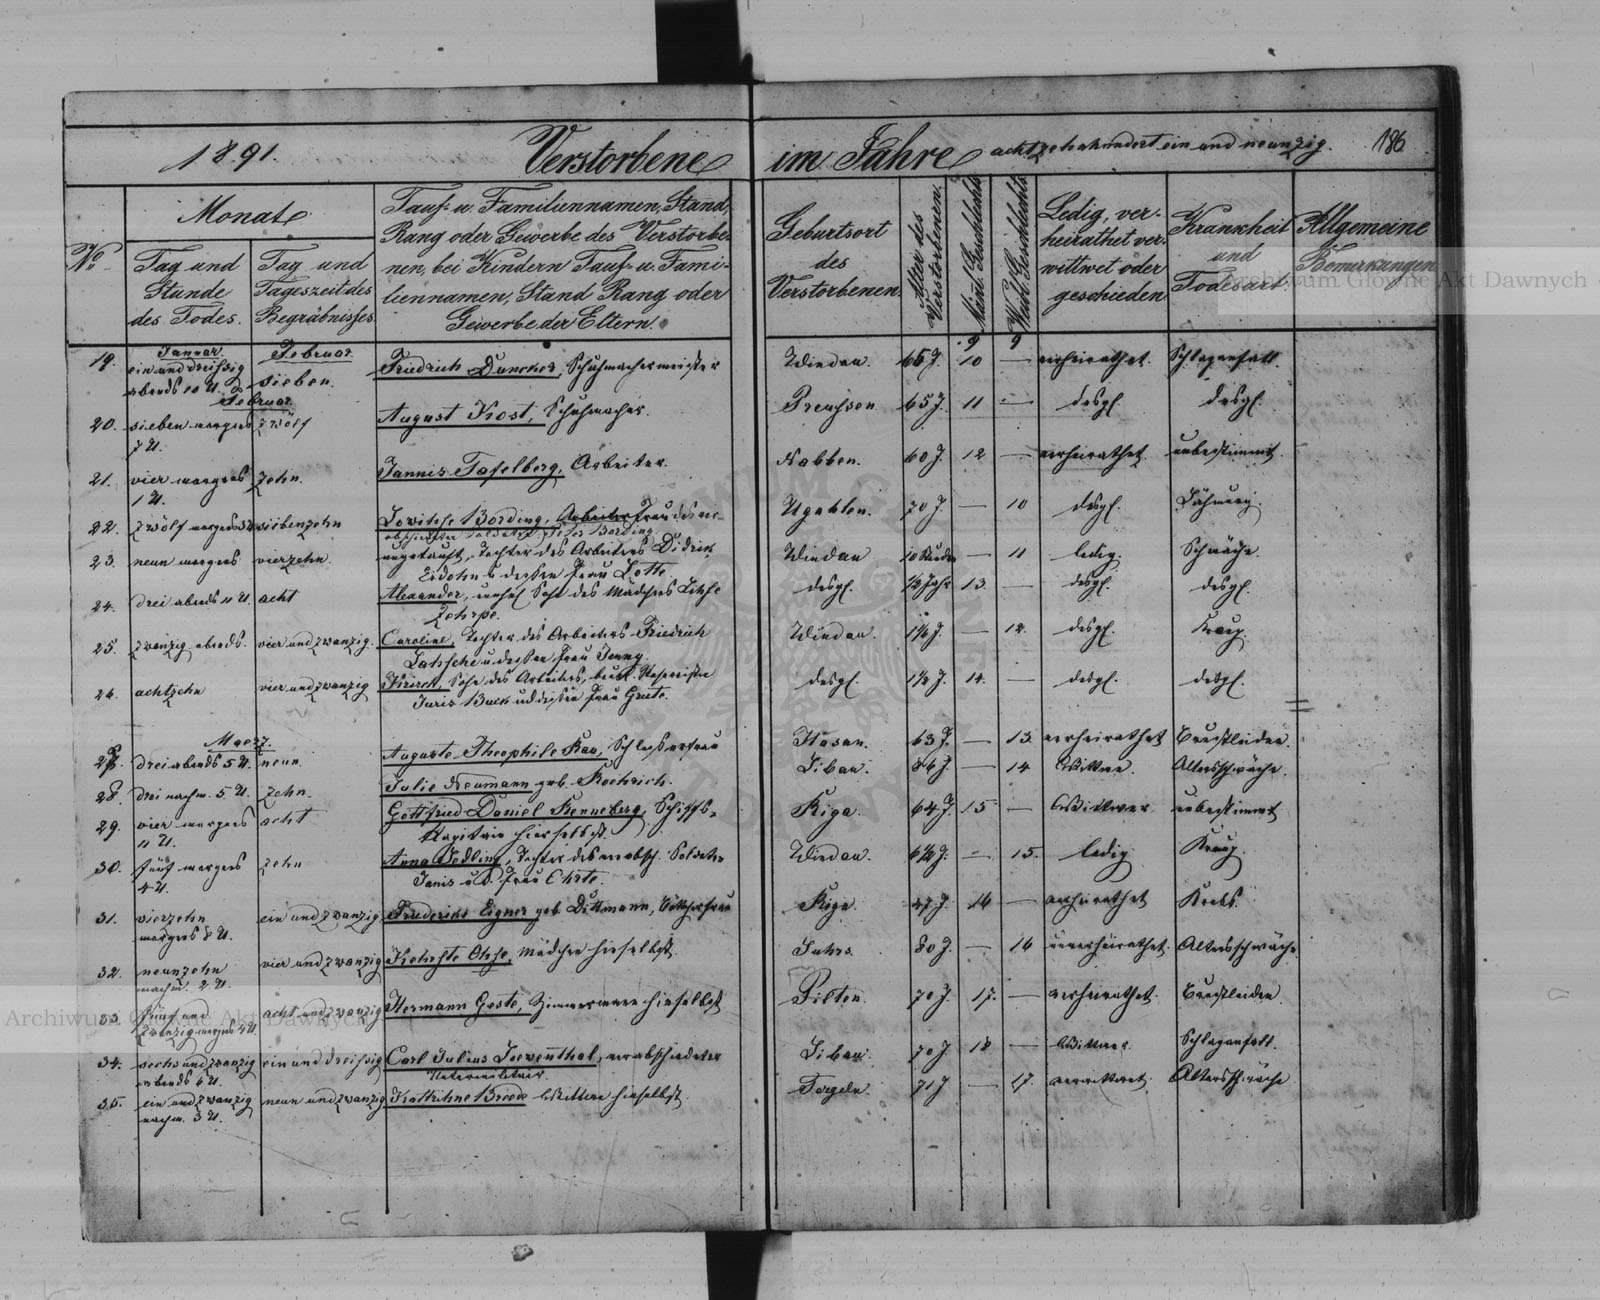 1891.
Verstorbene
im Jahre achtzehnhundert ein und neunzig.
186
No
Monat
Tag und Stunde des Todes.
Tag und Tageszeit des Begräbnisses
Tauf- u. Familiennamen, Stand,
Rang oder Gewerbe des Verstorbe-
nen, bei Kindern Tauf- u. Fami-
liennamen, Stand Rang oder
Gewerbe der Eltern.
Geburtsort des Verstorbenen.
Alter des Verstorbenen.
Männl. Geschlechts
Weibl. Geschlechts
Ledig, ver-
heirathet ver-
wittwet oder
geschieden
Krankheit und Todesart.
Allgemeine Bemerkungen
Januar.
Februar.
9
9
19. ein und dreißig abends 10 U. sieben. Friedrich Duncker, Schuhmachermeister Windau. 65 J. 10 — verheirathet. Schlaganfall.
Februar
20. sieben morgens 7 U. zwölf August Kost, Schuhmacher. Preussen 65 J. 11 — desgl. desgl.
21. vier morgens 1 U. zehn. Jannis Tafelberg, Arbeiter. 60 J. 12 — verheirathet. unbestimmt.
22. zwölf morgens siebenzehn Bording, Frau des ver-
abschiedeten Soldaten Bording Ugahlen. 70 J. — 10 desgl. Lähmung.
23. neun morgens vierzehn. ungetauft, Tochter des Arbeiters Didrik
u dessen Frau Lotte. Windau 10 Stunden — 11 ledig. Schwäche.
24. drei abends 11 U. acht Alexander, unehel Sohn des Mädchens
desgl. 1/2 Jahr 13. — desgl. desgl.
25. zwanzig abends. vier und zwanzig. Caroline, Tochter des Arbeiters Friedrich
u dessen Frau Jenny. Windau. — 12. desgl.
26. achtzehn vier und zwanzig Sohn des Arbeiters,
Juris Buck und dessen Frau Grete. desgl. 14. — desgl. desgl.
Maerz.
27. drei abends 5 U. neun. Auguste Theophile Schlosserfrau Hasau. 63 J. — 13 verheirathet Brustleiden.
28. drei nachm. 5 U. zehn. Julie Neumann geb. Libau. 86 J. — 14 Wittwe. Altersschwäche.
29. vier morgens 11 U. acht Gottfried Daniel Kenneberg, Schiffs-
Kapitain hierselbst. Riga. 64 J. 15 — Wittwer unbestimmt
30. fünf morgens 4 U. zehn Anna Tochter des verabsch. Soldaten
Janis u. s. Frau Windau. — 15. ledig
31. vierzehn morgens 8 U. ein und zwanzig Friederike Eigner geb. Dittmann, Böttcherfrau Riga. 47 J. 16 — verheirathet Krebs.
32. neunzehn nachm. 2 U. vier und zwanzig Mädchen hieselbst. 80 J. — 16 unverheirathet. Altersschwäche.
33. fünf und zwanzig morgens 4 U. acht und zwanzig Hermann Zimmermann hieselbst Pilten. 70 J. 17. — verheirathet. Brustleiden.
34. sechs und zwanzig abends 6 U. ein und dreissig Carl Julius Loewenthal, verabschiedeter
Untermilitair. Libau. 70 J 18 — Wittwer. Schlaganfall.
35. ein und zwanzig nachm. 3 U. neun und zwanzig Kathrine Breede Wittwe hieselbst. Targeln. 71 J — 17. verwittwet. Altersschwäche
Archiwum Główne Akt Dawnych
Archiwum Główne Akt Dawnych